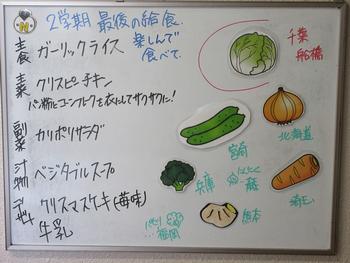 2学期 最後の給食.
楽しんで
食べて.
主食 ガーリックライス
主菜 クリスピーチキン
パン粉とコーンフレークを衣にしてザクザクに!
副菜 カリポリサラダ
汁物 ベジタブルスープ
デザート クリスマスケーキ(苺味)
牛乳
千葉
船橋
北海道
宮崎
にんにく
兵庫
埼玉
熊本
パセリ
…福岡